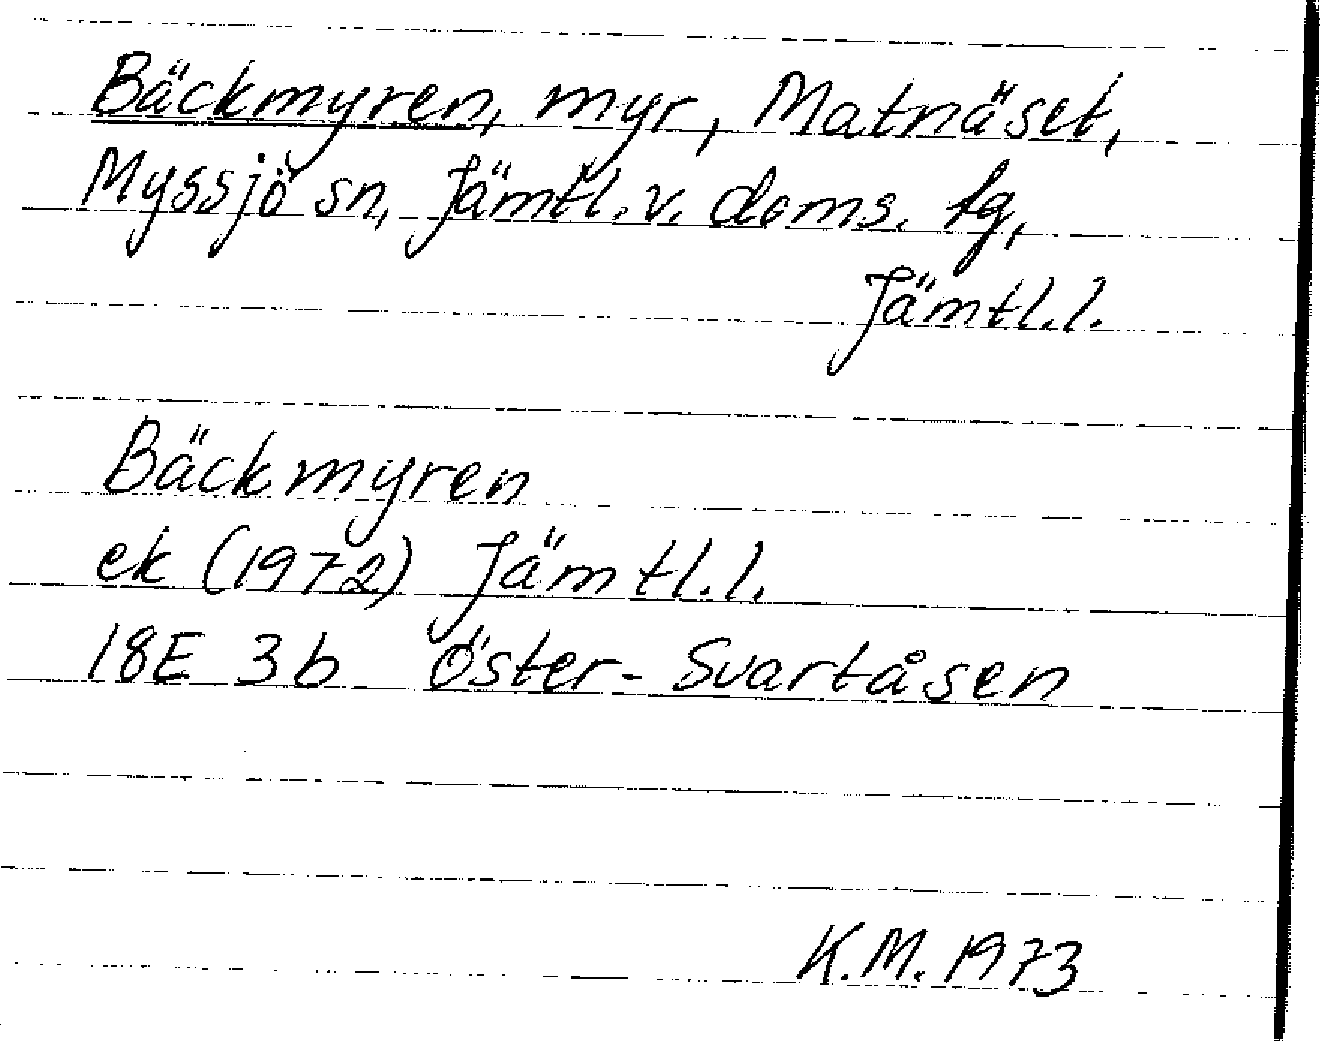 Bäckmyren, myr, Matnäset,
Myssjö sn, Jämtl. v. doms. tg,
Jämtl. l.
Bäckmyren
ek (1972) Jämtl. l.
18E 3b Öster-Svartåsen
K.M. 1973